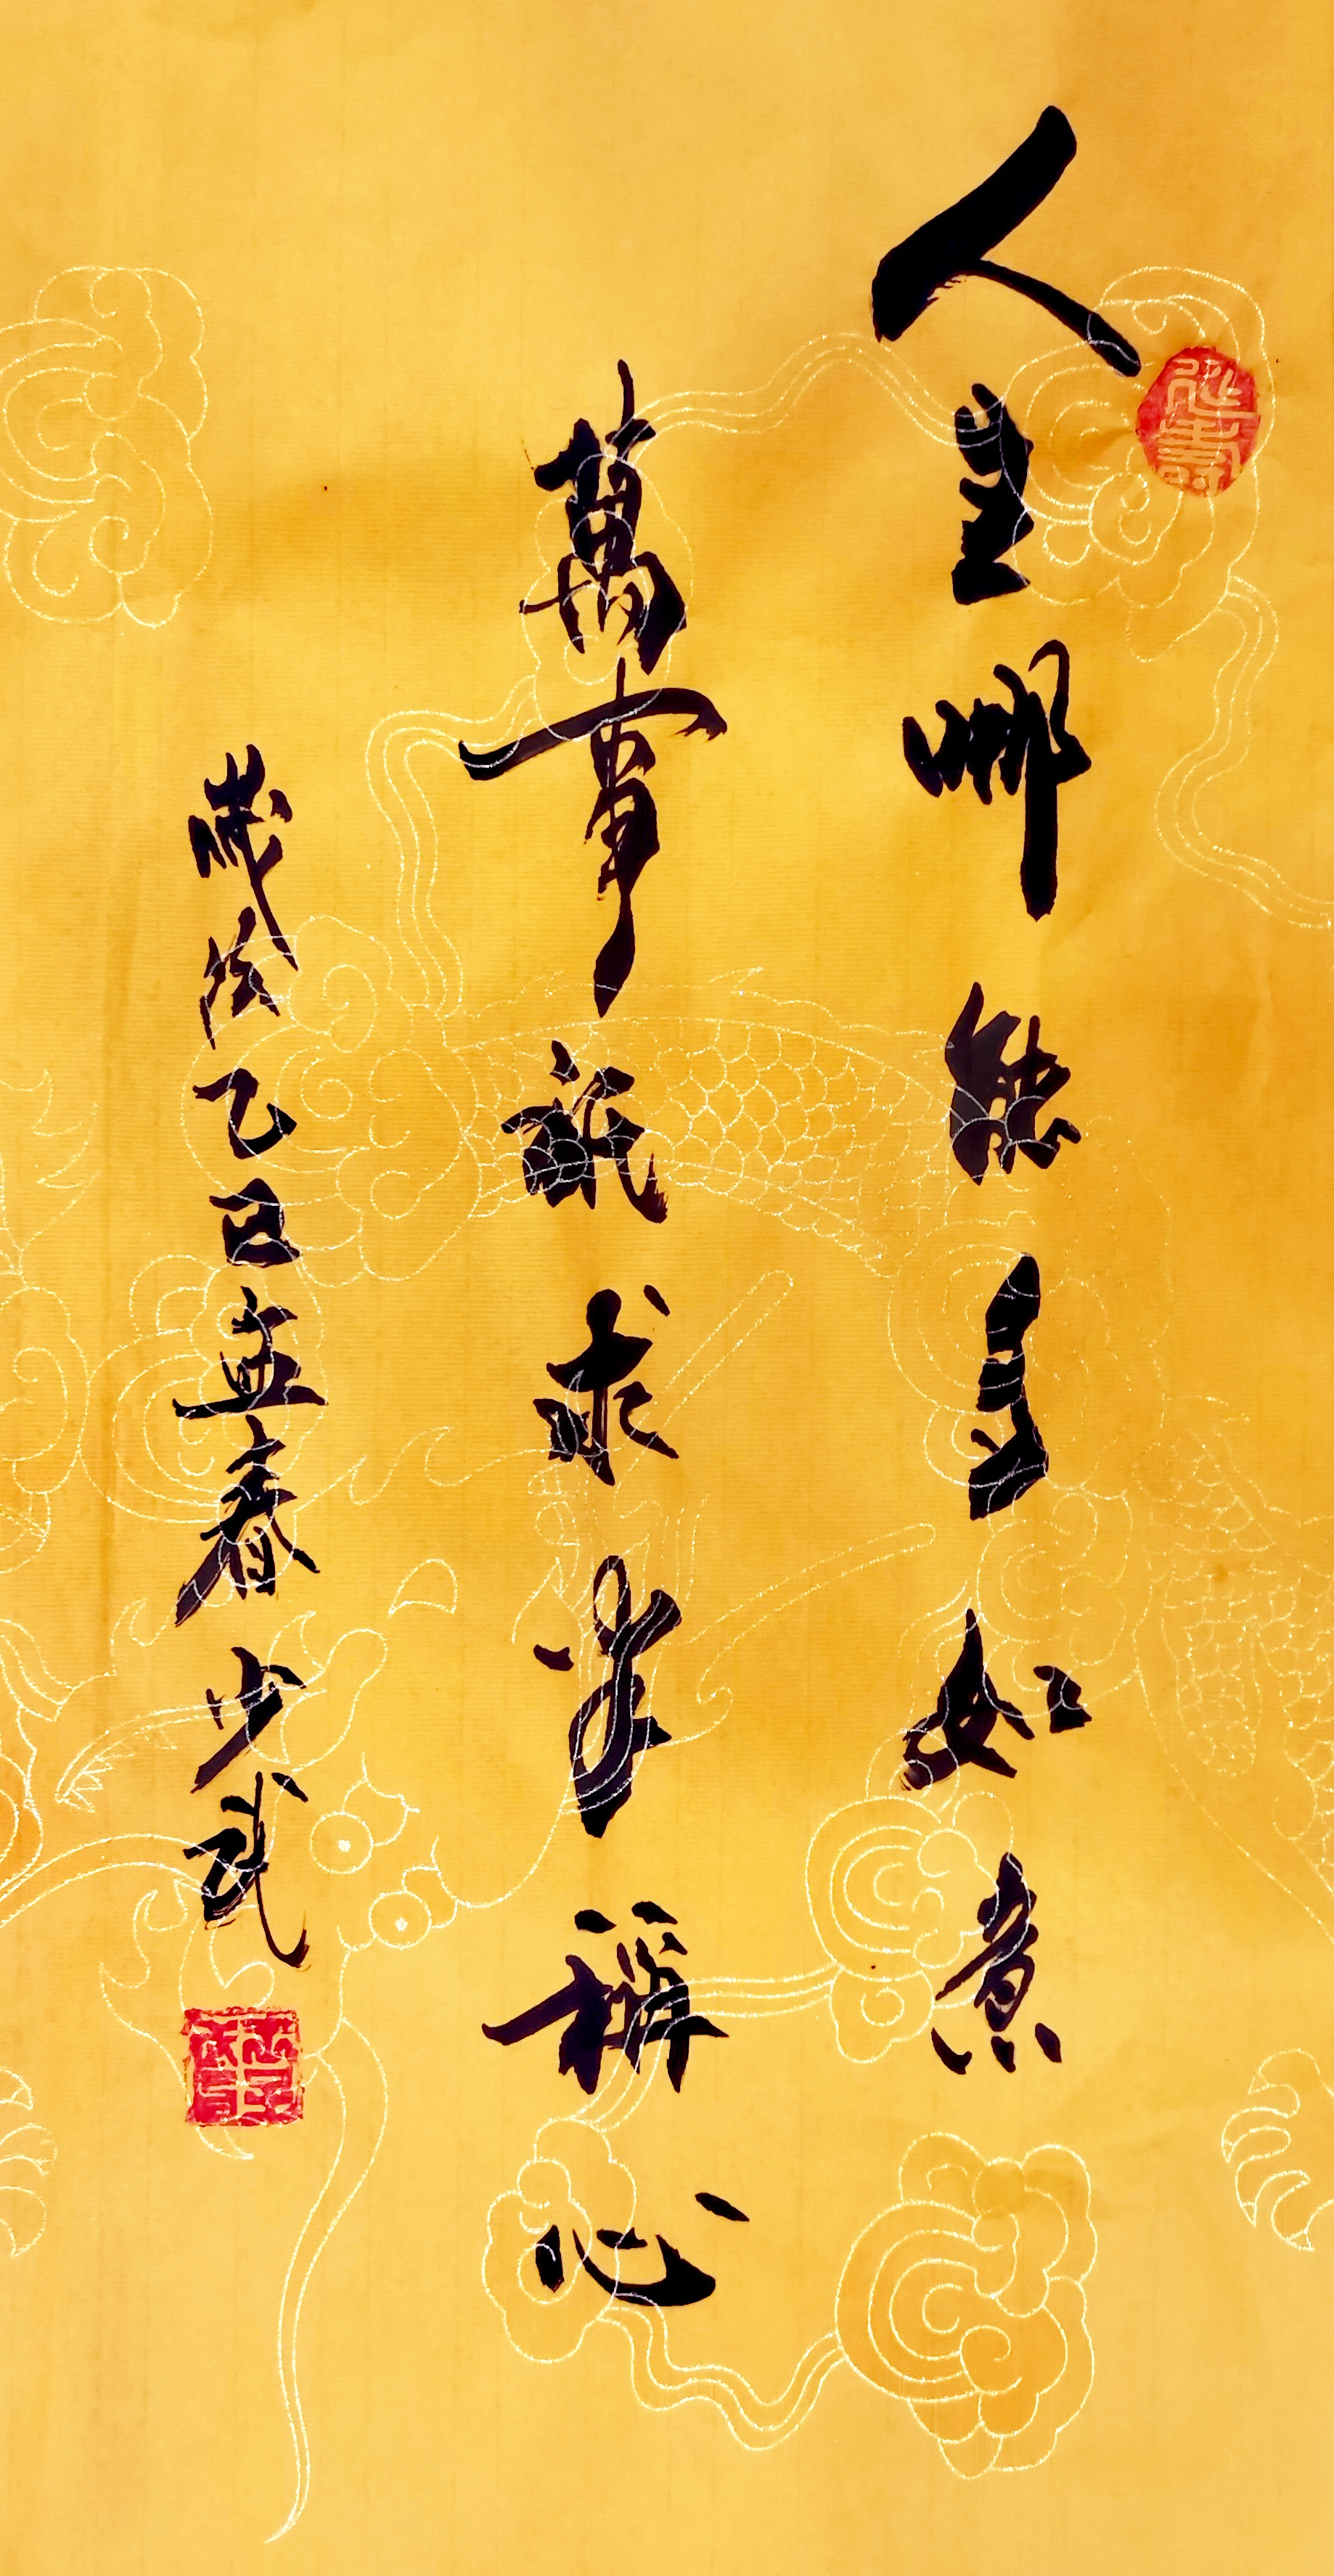 人生哪能多如意
萬事祇求半稱心
歲次乙巳孟春少武
延壽